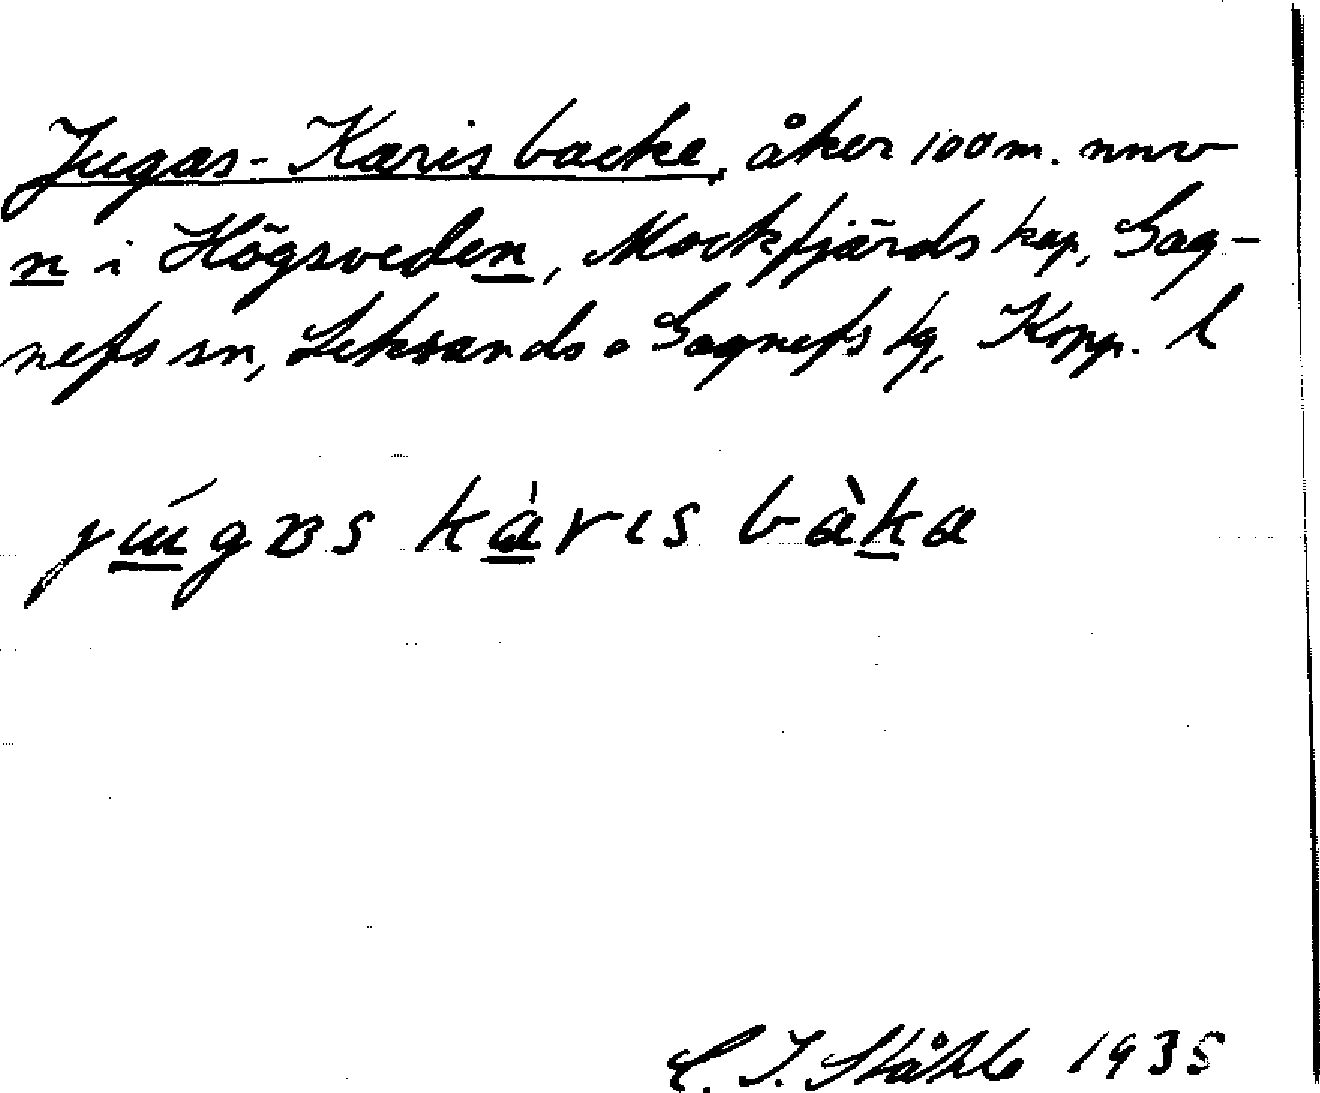 Jugas-Karis backe, åker 100 m. nnv
n i Högsveden, Mockfjärds kap, Gag-
nefs sn, Leksands o Gagnefs tg, Kopp. l
júgɐs kàrɩs bàka
C. I. Ståhle 1935